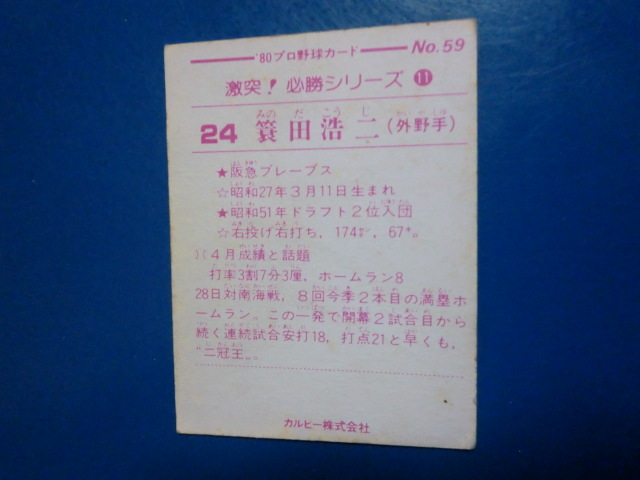 '80プロ野球カード No.59
激突！必勝シリーズ⓫
24 簑田浩二(外野手)
みの だ こう じ
★阪急ブレーブス
☆昭和27年3月11日生まれ
★昭和51年ドラフト2位入団
☆右投げ右打ち，174㌢，67㌔。
4月成績と話題
打率3割7分3厘，ホームラン8
28日対南海戦，8回今季2本目の満塁ホ
ームラン。この一発で開幕2試合目から
続く連続試合安打18，打点21と早くも，
“二冠王”。
カルビー株式会社